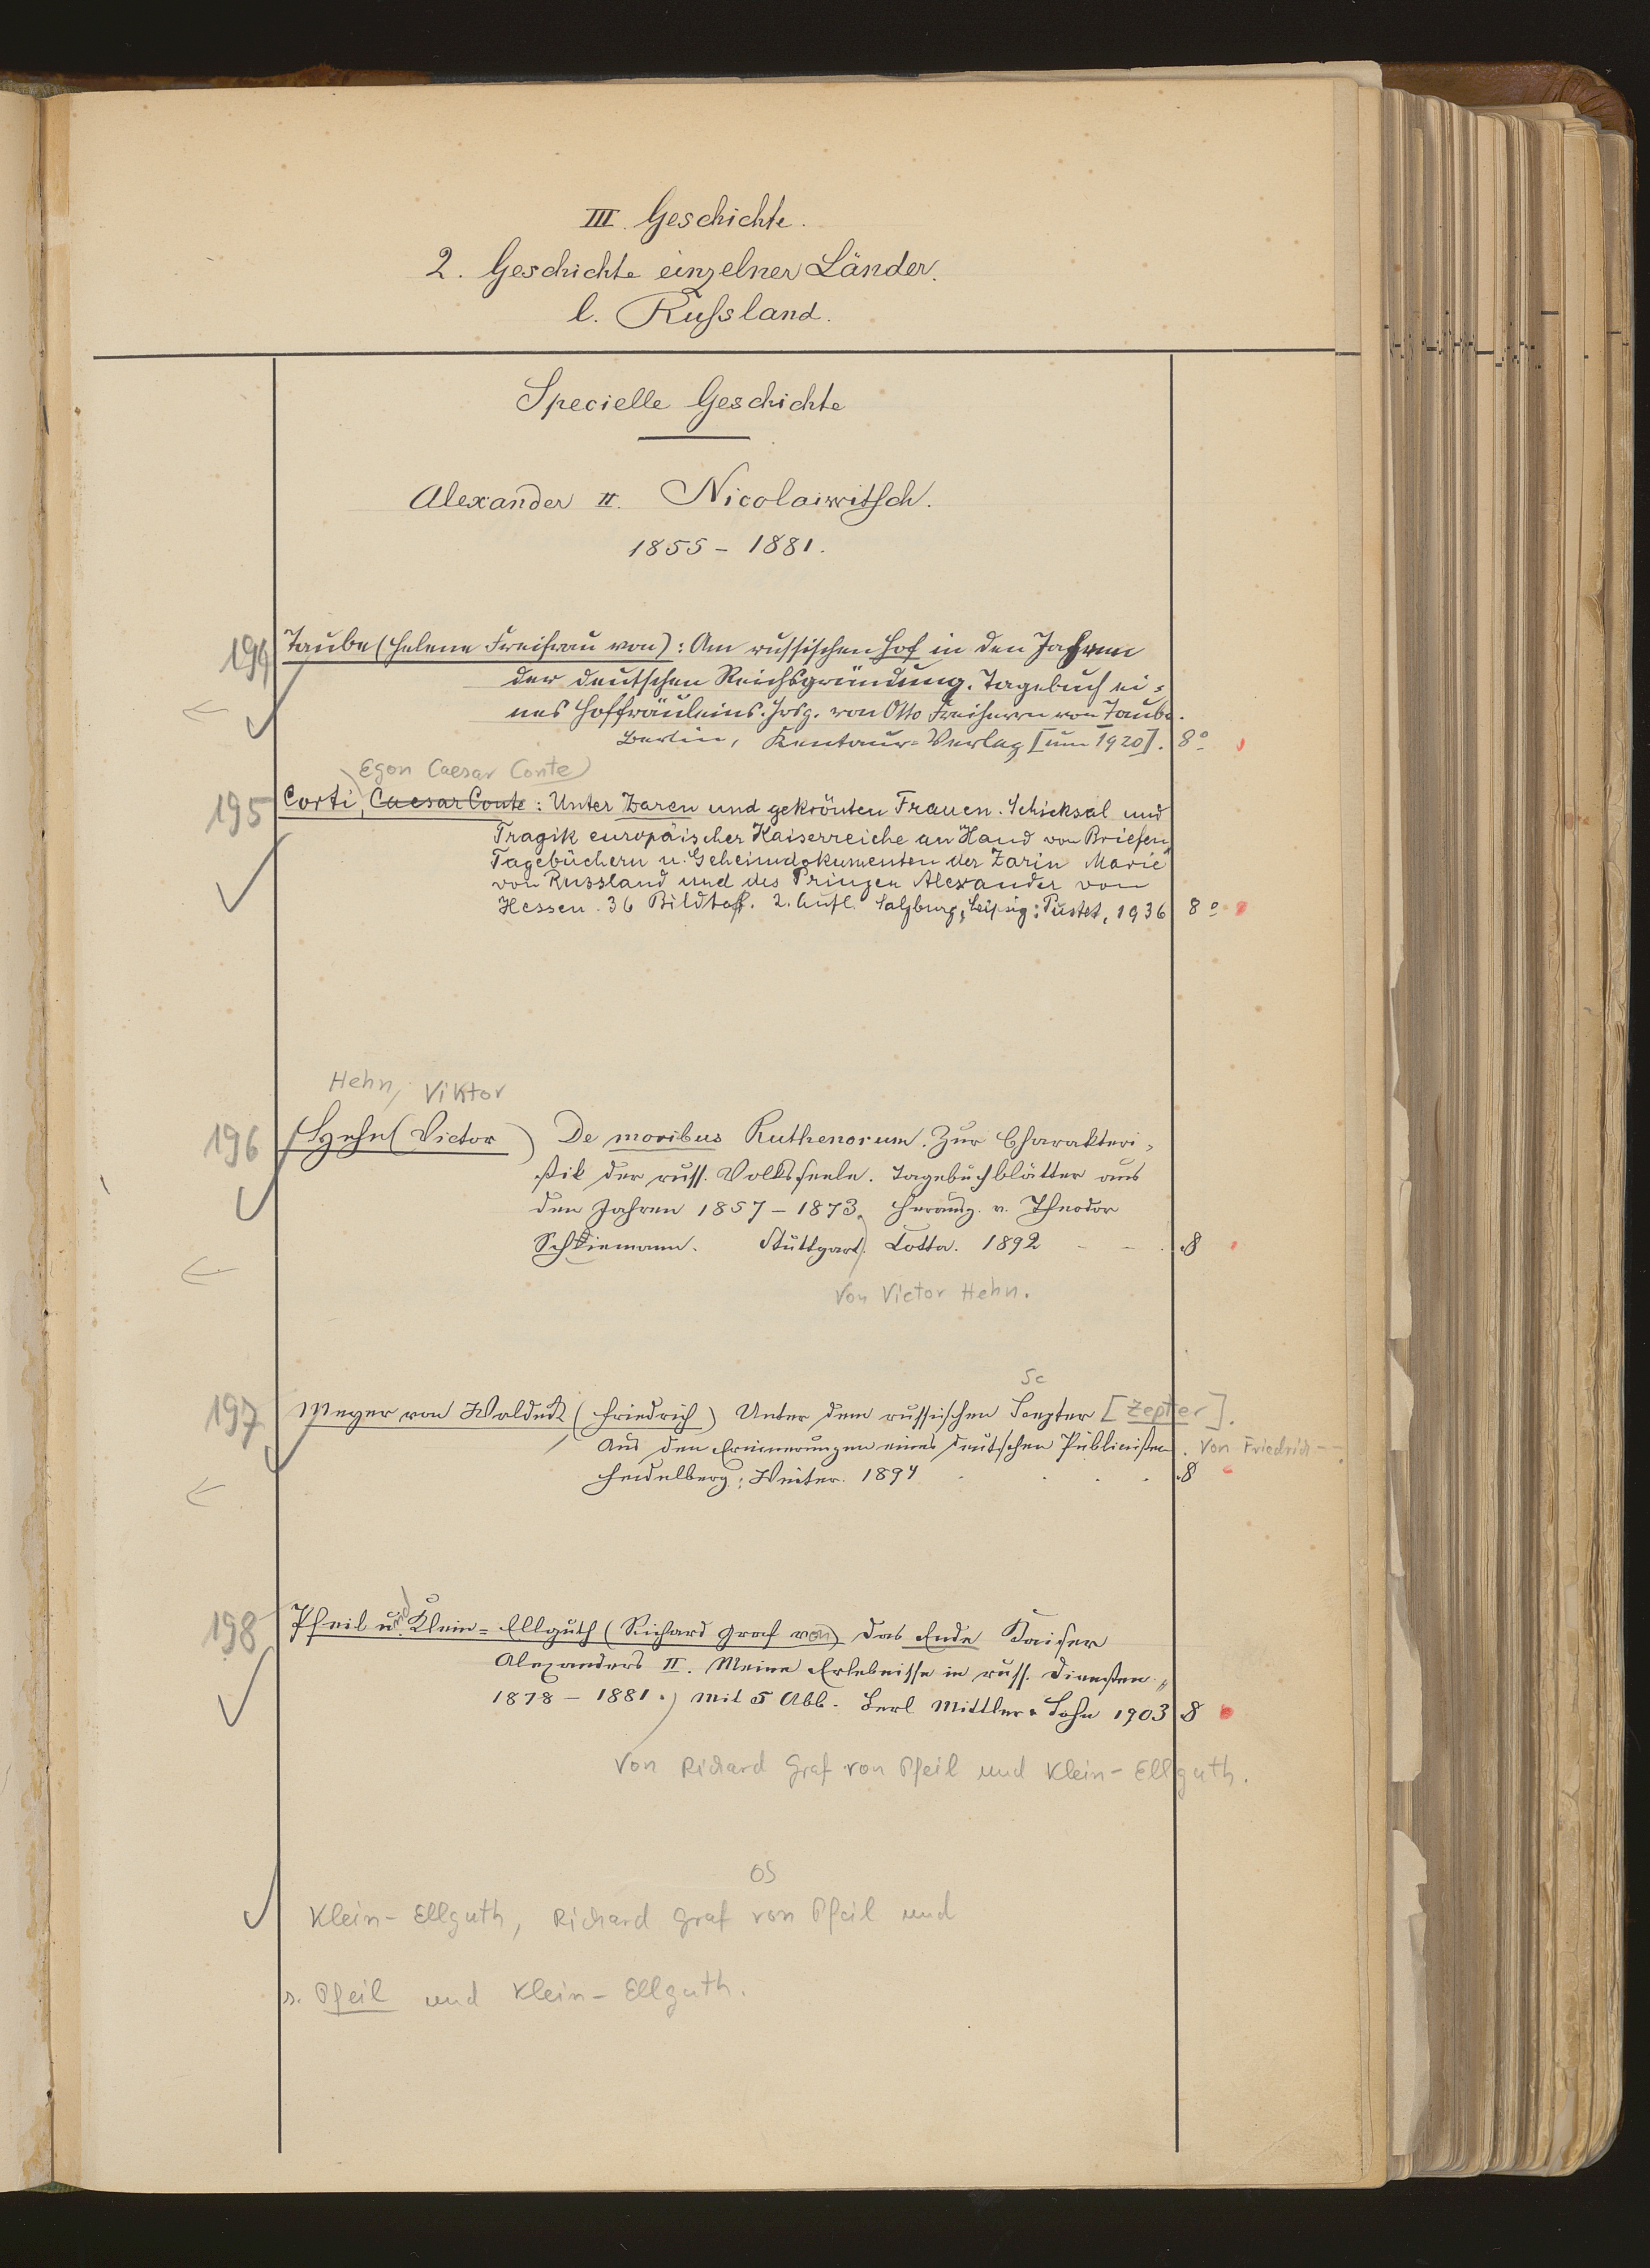 III. Geschichte.
2. Geschichte einzelner Länder.
l. Rußland.
Specielle Geschichte
Alexander II. Nicolaiwitsch.
1855 - 1881.
194 Taube (Helene Freifrau von): Am russischen Hof in den Jahren
der deutschen Reichsgründung. Tagebuch ei=
nes Hoffräuleins. Hrsg. von Otto Freiherrn von Taube.
Berlin, Kentaur=Verlag [um 1920]. 8°
Egon Caesar Conte
195 Corti, Caesar Conte: Unter Zaren und gekrönten Frauen. Schicksal und
Tragik europäischer Kaiserreiche an Hand von Briefen,
Tagebüchern u. Geheimdokumenten der Zarin Marie
von Russland und des Prinzen Alexander von
Hessen. 36 Bildtaf. 2. Aufl. Salzburg; Leipzig: Pustet, 1936 8°
Hehn, Viktor
196 Hehn (Victor) De moribus Ruthenorum. Zur Charakteri=
stik der russ. Volksseele. Tagebuchblätter aus
den Jahren 1857 - 1873. Herausg. v. Theodor
Schiemann. Stuttgart. Cotta. 1892 - - . 8
Von Victor Hehn.
Sc
197 Meyer von Waldeck (Friedrich) Unter dem russischen Scepter [Zepter].
Aus den Erinnerungen eines deutschen Publicisten. Von Friedrich --
Heidelberg: Winter. 1894 . . . . 8
198 Pfeil und Klein=Ellguth (Richard Graf von) Das Ende Kaiser
Alexanders II. Meine Erlebnisse in russ. Diensten
1878 - 1881. Mit 5 Abb. Berl Mittler & Sohn 1903 8
Von Richard Graf von Pfeil und Klein-Ellguth.
OS
Klein-Ellguth, Richard Graf von Pfeil und
s. Pfeil und Klein-Ellguth.